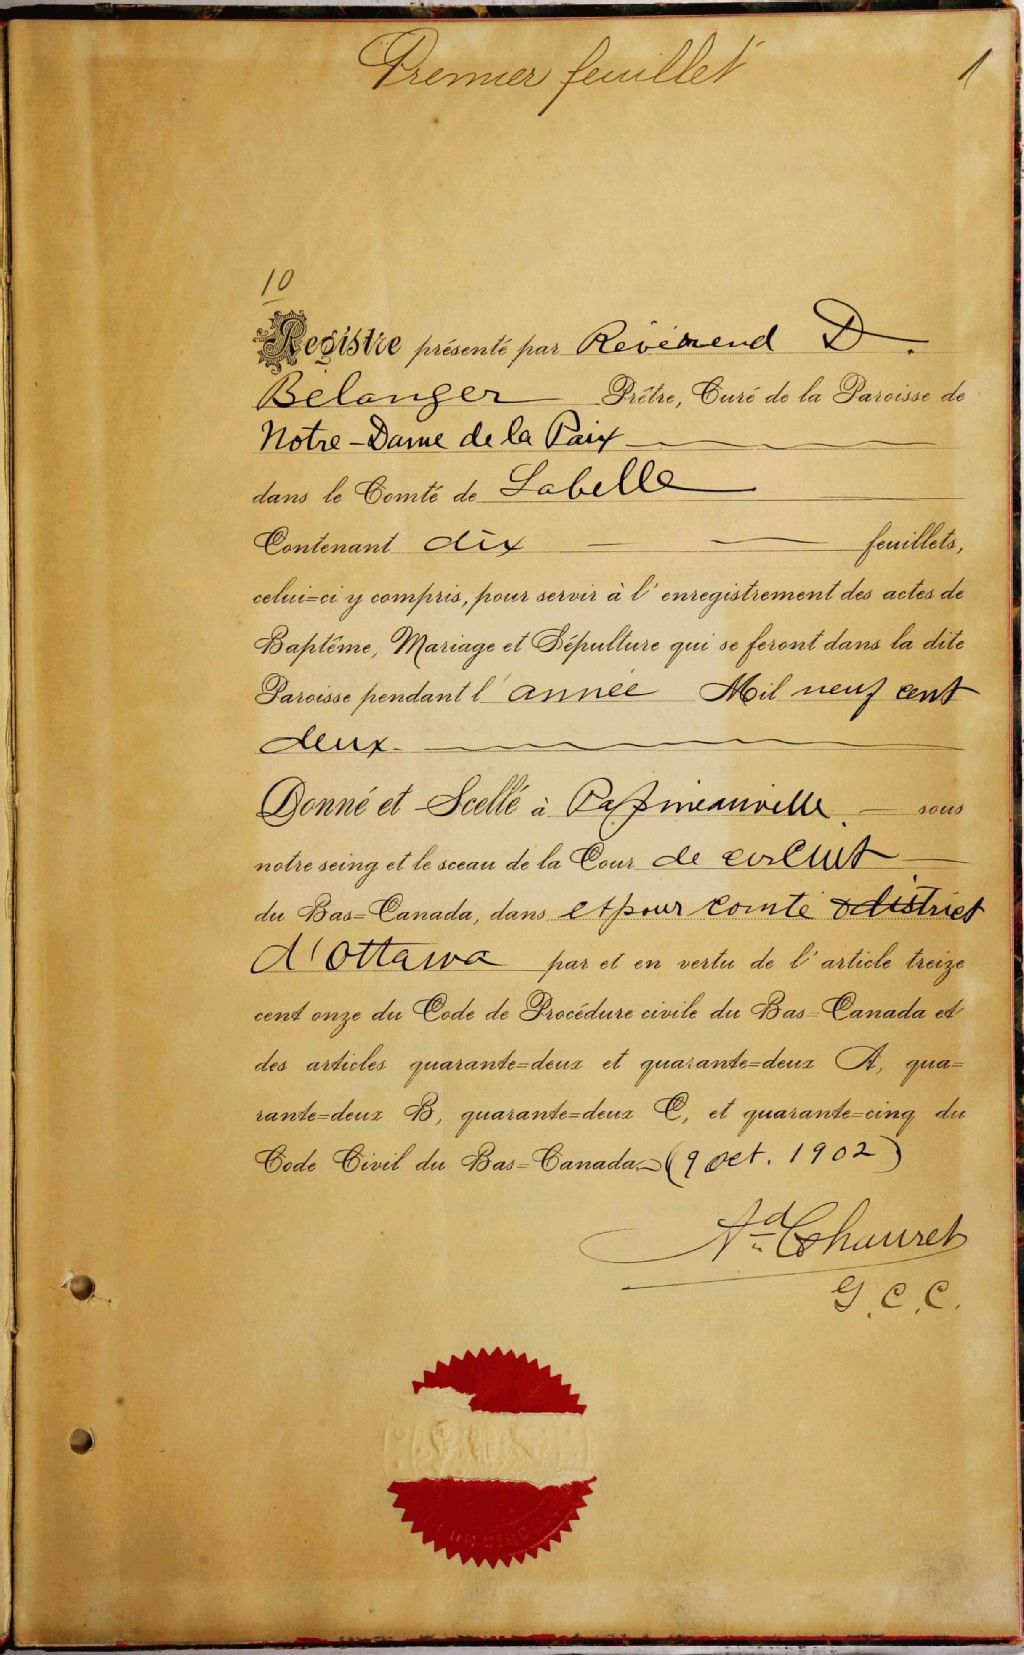 Premier feuillet
1
10
Registre présenté par Révérend D.
Bélanger Prêtre, Curé de la Paroisse de
Notre-Dame de la Paix
dans le Comté de Labelle
Contenant dix feuillets,
celui=ci y compris, pour servir à l'enregistrement des actes de
Baptême, Mariage et Sépulture qui se feront dans la dite
Paroisse pendant l'année Mil neuf cent
deux.
Donné et Scellé à Papineauville. sous
notre seing et le sceau de la Cour de circuit
du Bas=Canada, dans et pour comté & district
d'Ottawa par et en vertu de l'article treize
cent onze du Code de Procédure civile du Bas=Canada et
des articles quarante=deux et quarante=deux A, qua=
rante=deux B, quarante=deux C, et quarante=cinq du
Code Civil du Bas=Canada.- (9 Oct. 1902)
Ad Chauret
G.C.C.